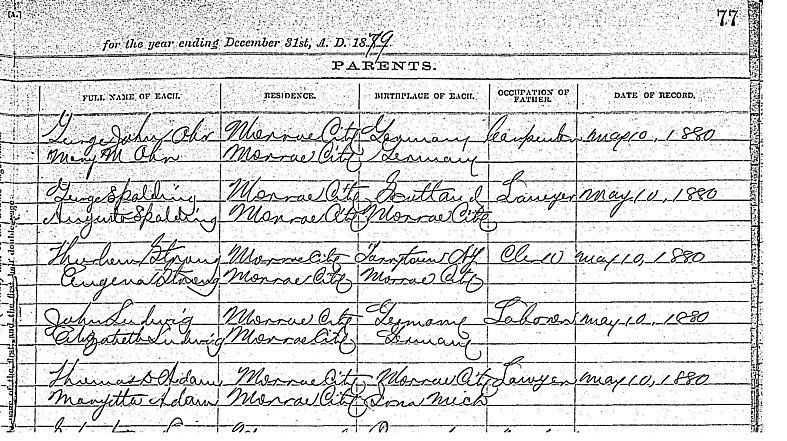 77
for the year ending December 31st, A. D. 1879
PARENTS.
FULL NAME OF EACH. RESIDENCE. BIRTHPLACE OF EACH. OCCUPATION OF FATHER. DATE OF RECORD.
George John Ohr Monroe City Germany Carpenter May 10, 1880
Mary M Ohr Monroe City Germany
George Spalding Monroe City Scotland Lawyer May 10, 1880
Augusta Spalding Monroe City Monroe City
Strong Monroe City Tarrytown NY Clerk May 10, 1880
Eugena Strong Monroe City Monroe City
John Ludwig Monroe City Germany Laborer May 10, 1880
Elizabeth Ludwig Monroe City Germany
Thomas D Adam Monroe City Monroe City Lawyer May 10, 1880
Maryetta Adam Monroe City Iona Mich